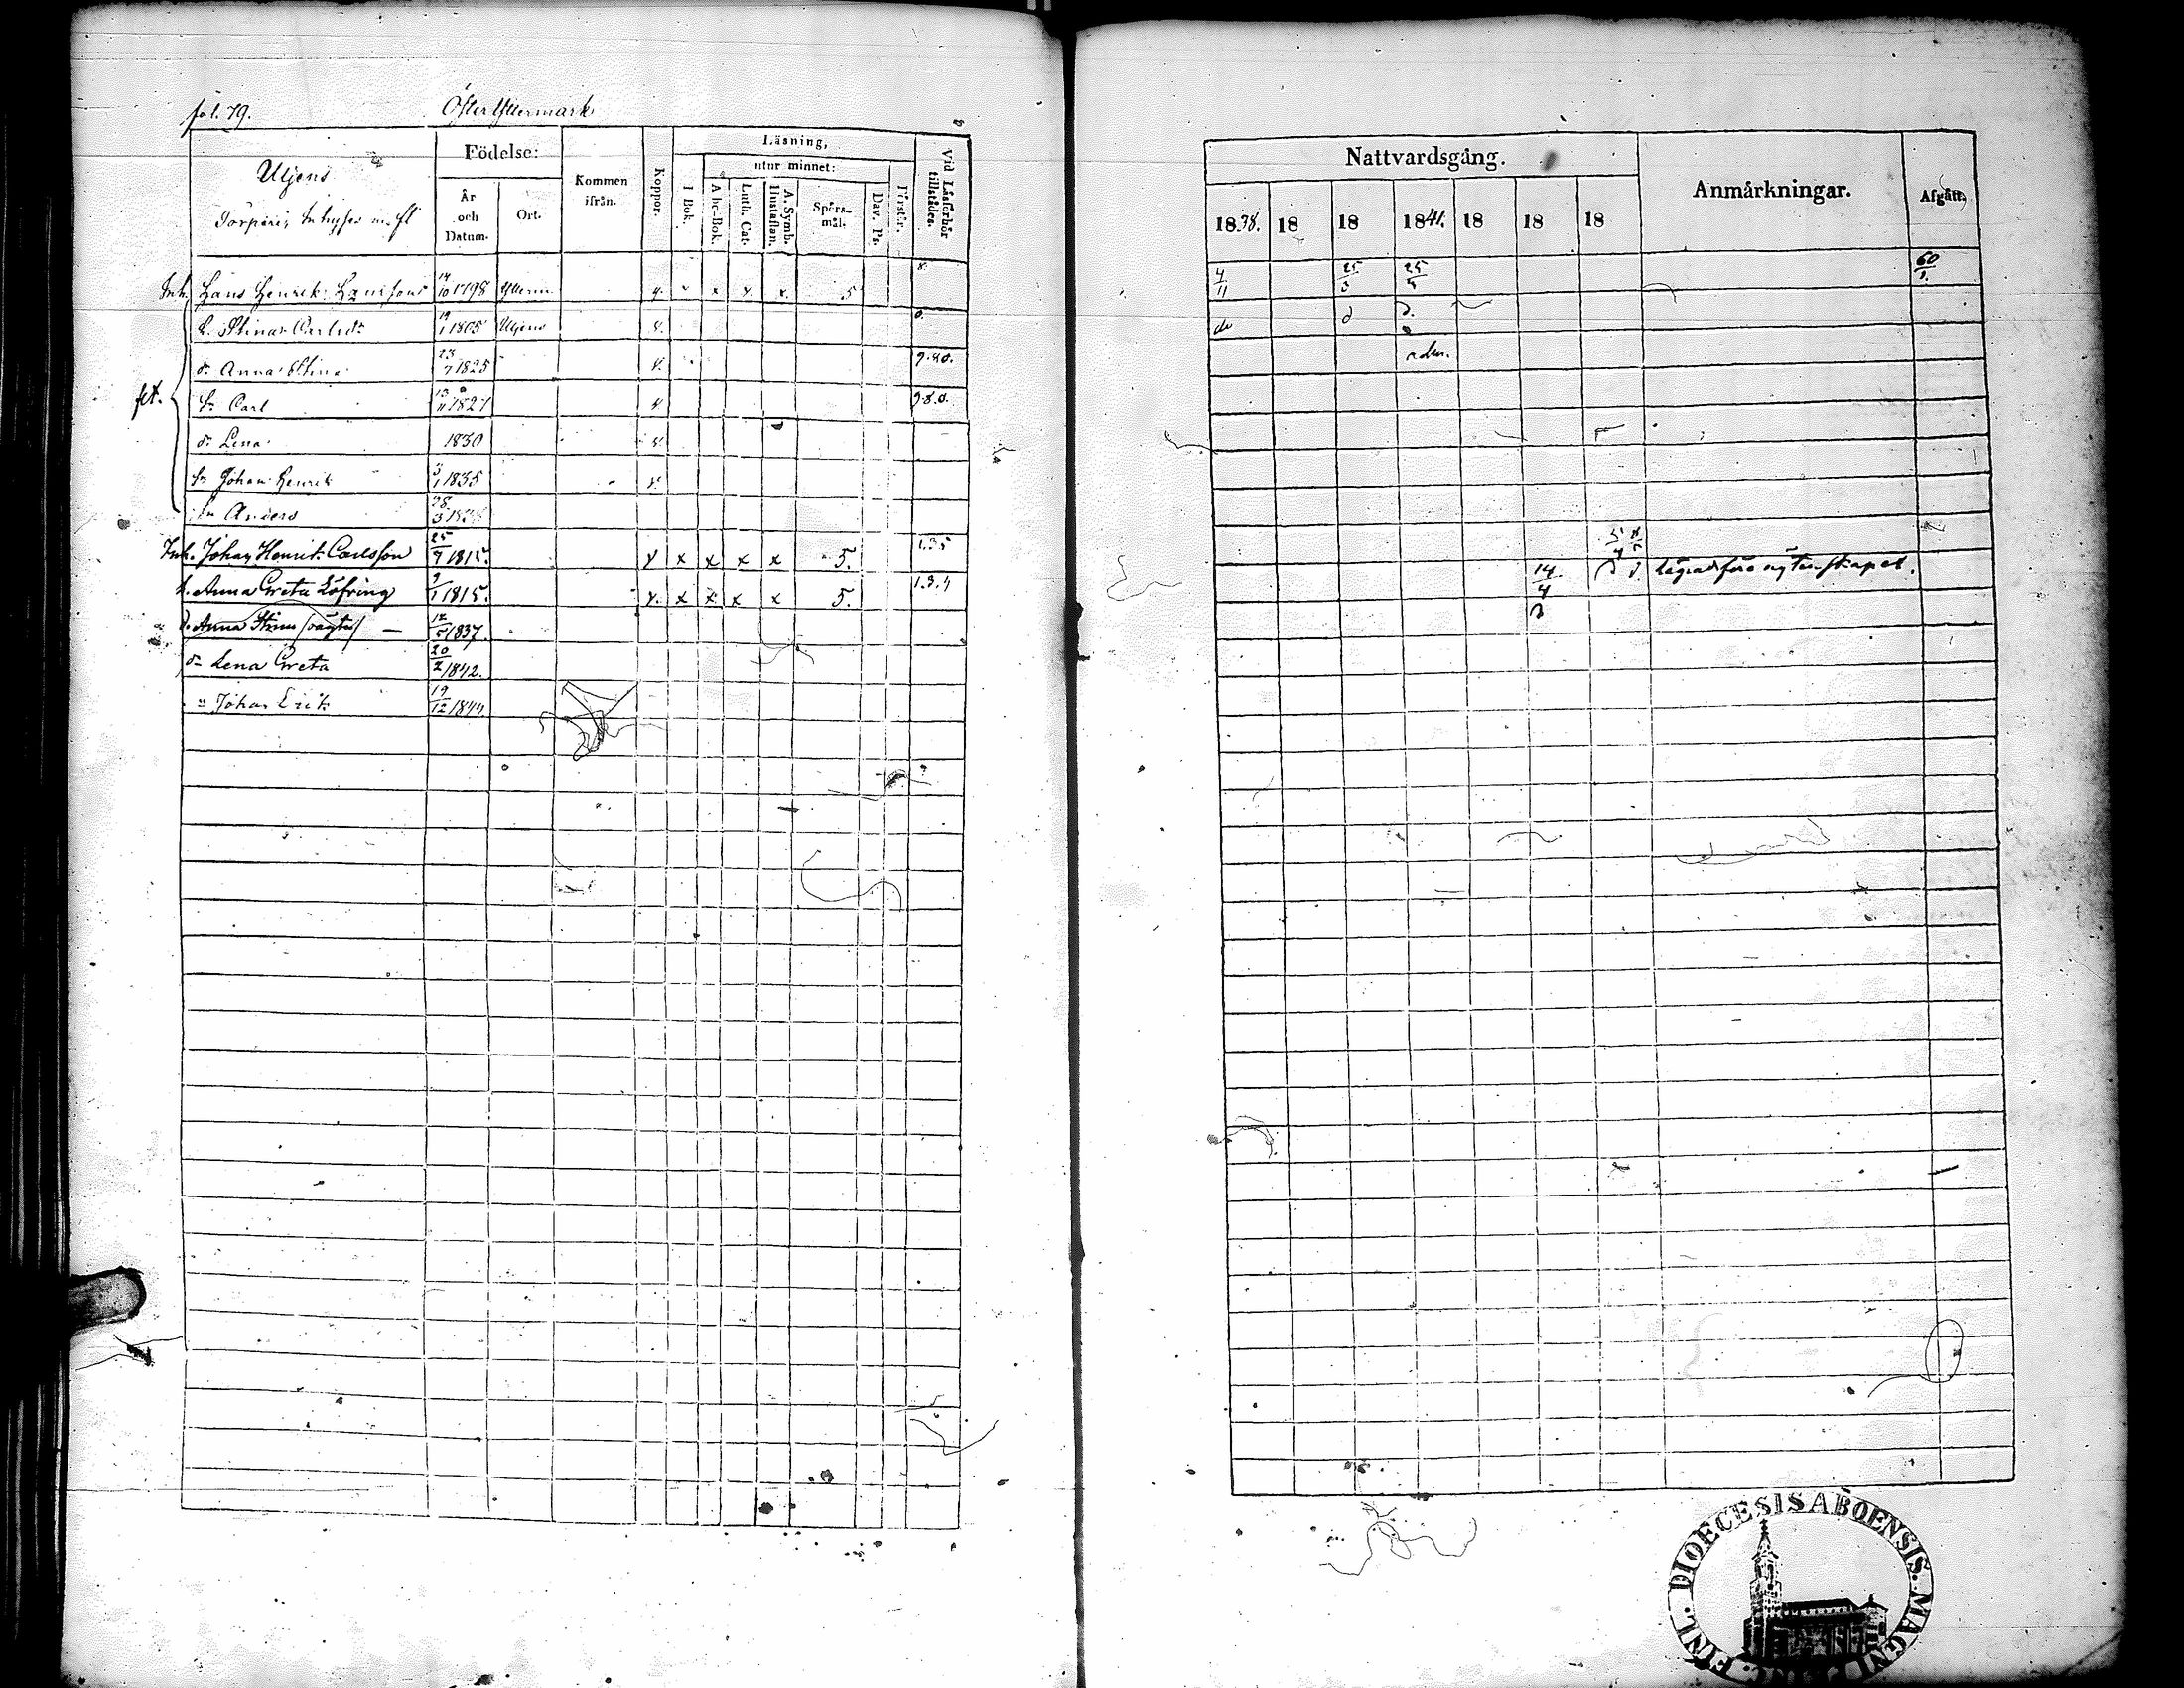 fol. 79. Öfter Yttermark
Utjens
Torpare, Inhyses m. fl
Födelse:
År och Datum.
Ort.
Kommen ifrån.
Koppor.
Läsning,
utur minnet:
I Bok.
Abc-Bok.
Luth. Cat.
A. Symb. Hustaflan.
Spörsmål.
Dav. Ps.
Förstår.
Vid Läsförhör tillstädes.
Inh. Hans Henrik Hansson 14/10 1798 Ytterm x x x x 5 8.
h. Stina Carlsdr 19/1 1805 Utjens x. 0.
dr Anna Stina 23/7 1825 x. 9.40.
sn Carl 13/11 1827 x
flt.
dr Lena 1830 x
sn Johan Henrik 3/1 1835 x
sn Anders 28/3
Inh. Johan Henrik Carlsson 25/7 1815. x x x x x 5. 1.3.5
h. Anna Greta Löfring 9/1 1815. x. x x x x 5. 1.3.4
d. Anna Stina (oägta) — 12/5 1837.
dr Lena Greta 20/2 1842.
" Johan Erik 19/12 1844.
Nattvardsgång.
Anmärkningar.
Afgått.
1838. 18 18 1841. 18 18 18
4/11 25/3 25/4 60/1.
do d d.
adm.
14/4 lägrad före ägtenskapet.
d
FINL. DIOECESIS ABOENSIS. MAGNI